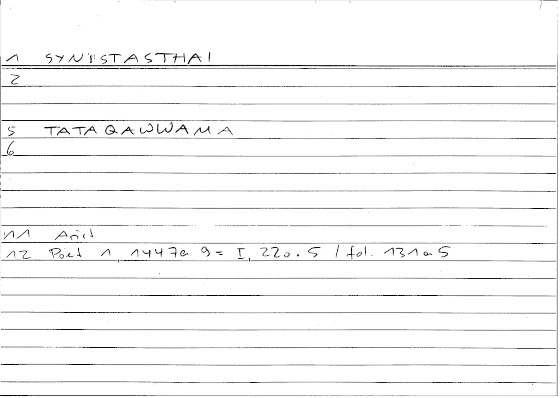 1 SYNISTASTHAI
2
5 TATAQAWWAMA
6
11 Arist
12 Poet 1, 1447a 9 = I, 220.5 / fol. 131a5